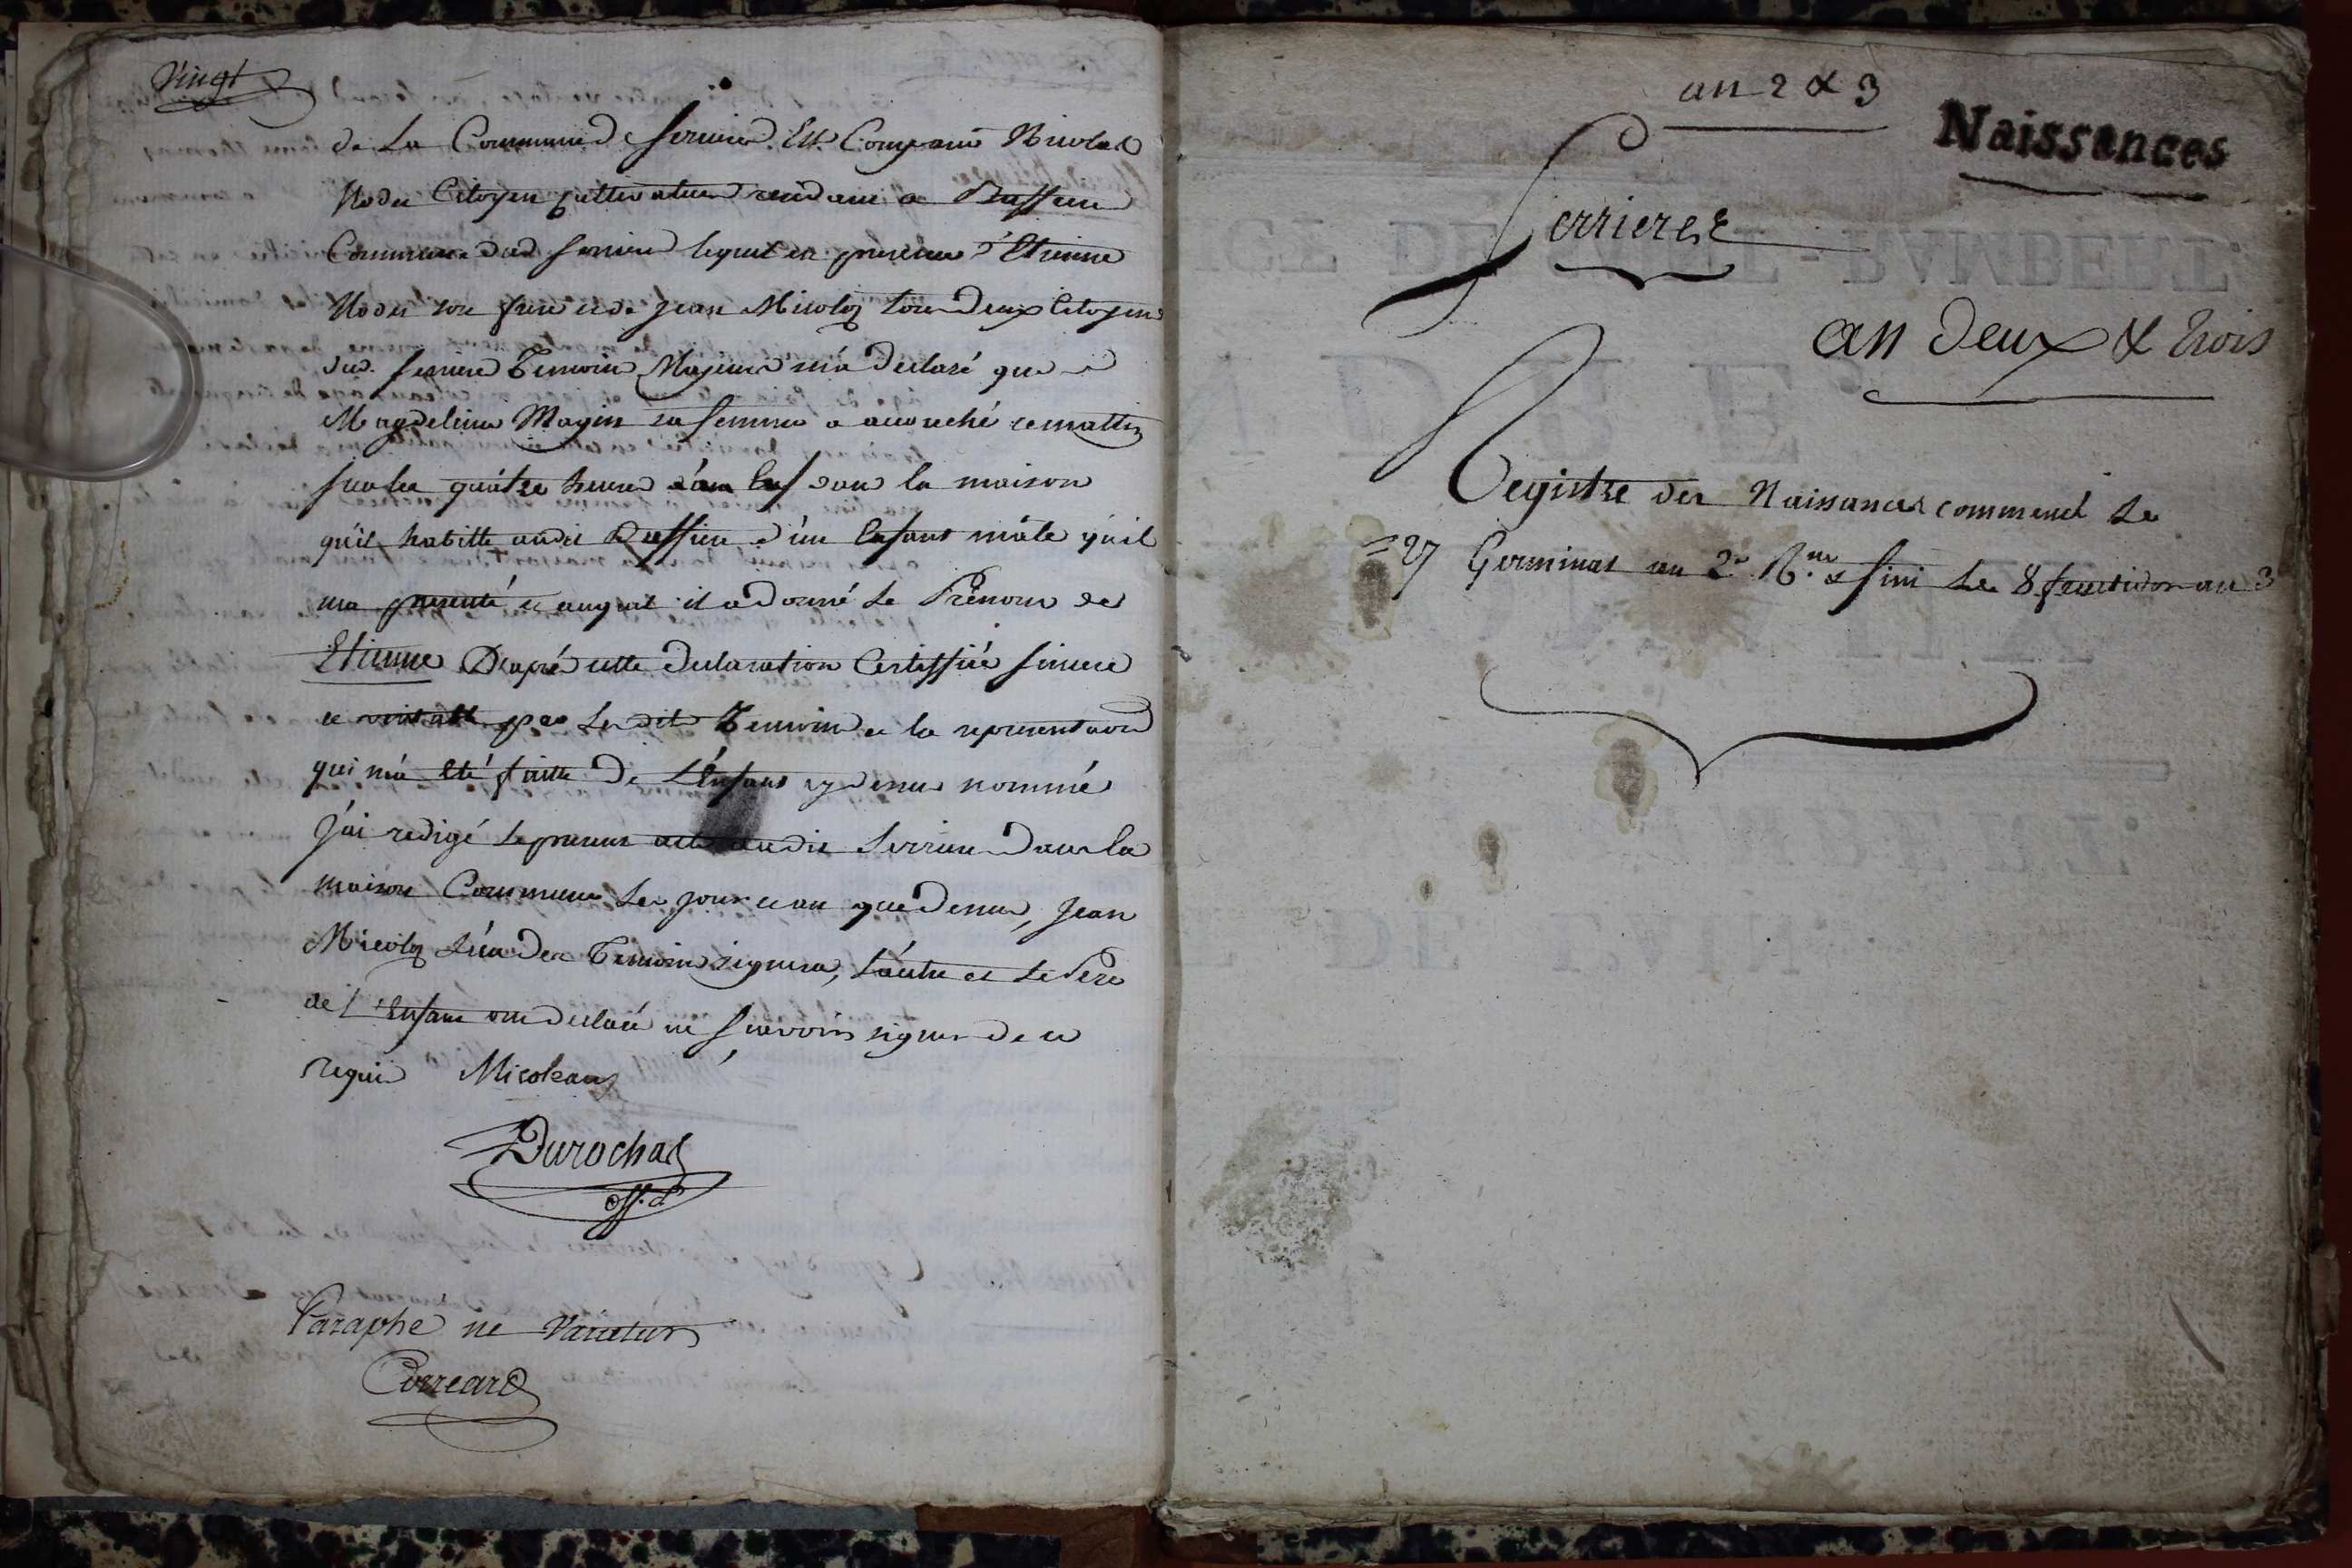 Vingt
de La Commune Serriere. Est Comparu Nicolas
Nodet Citoyen cultivateur residant a
Commune dud serriere lequel en presence d'Etienne
Nodet son frere et de jean Micolo tous Deux Citoyens
dud. serriere Temoins Majeurs m'a Declaré que
Magdeleine Magin sa femme a accouché ce mattin
sur les quatre heures dans la maison
qu'il habitte audit d'un Enfant mâle qu'il
ma presenté et auquel il a donné le Prénom de
Etienne D'apré cette Declaration Certiffiée sincere
et veritable par les dits Temoins et la representaon
qui m'a Eté faitte De L'Enfant cy dessus nommé
J'ai redigé le present acte audit Serriere Dans la
maison Commune les jour et an que Dessus, Jean
l'un Des Temoins signera, l'autre et le Pere
de l'Enfant ont declaré ne sçavoir signer de ce
requis Micoleau
Durochat
off. d
Paraphé ne Varietur
Correard
an 2 & 3
Naissances
Serrieres
an Deux & trois
Registre des Naissances commencé Le
27 Germinal an 2e R.ne & fini Le 8 fructidor an 3